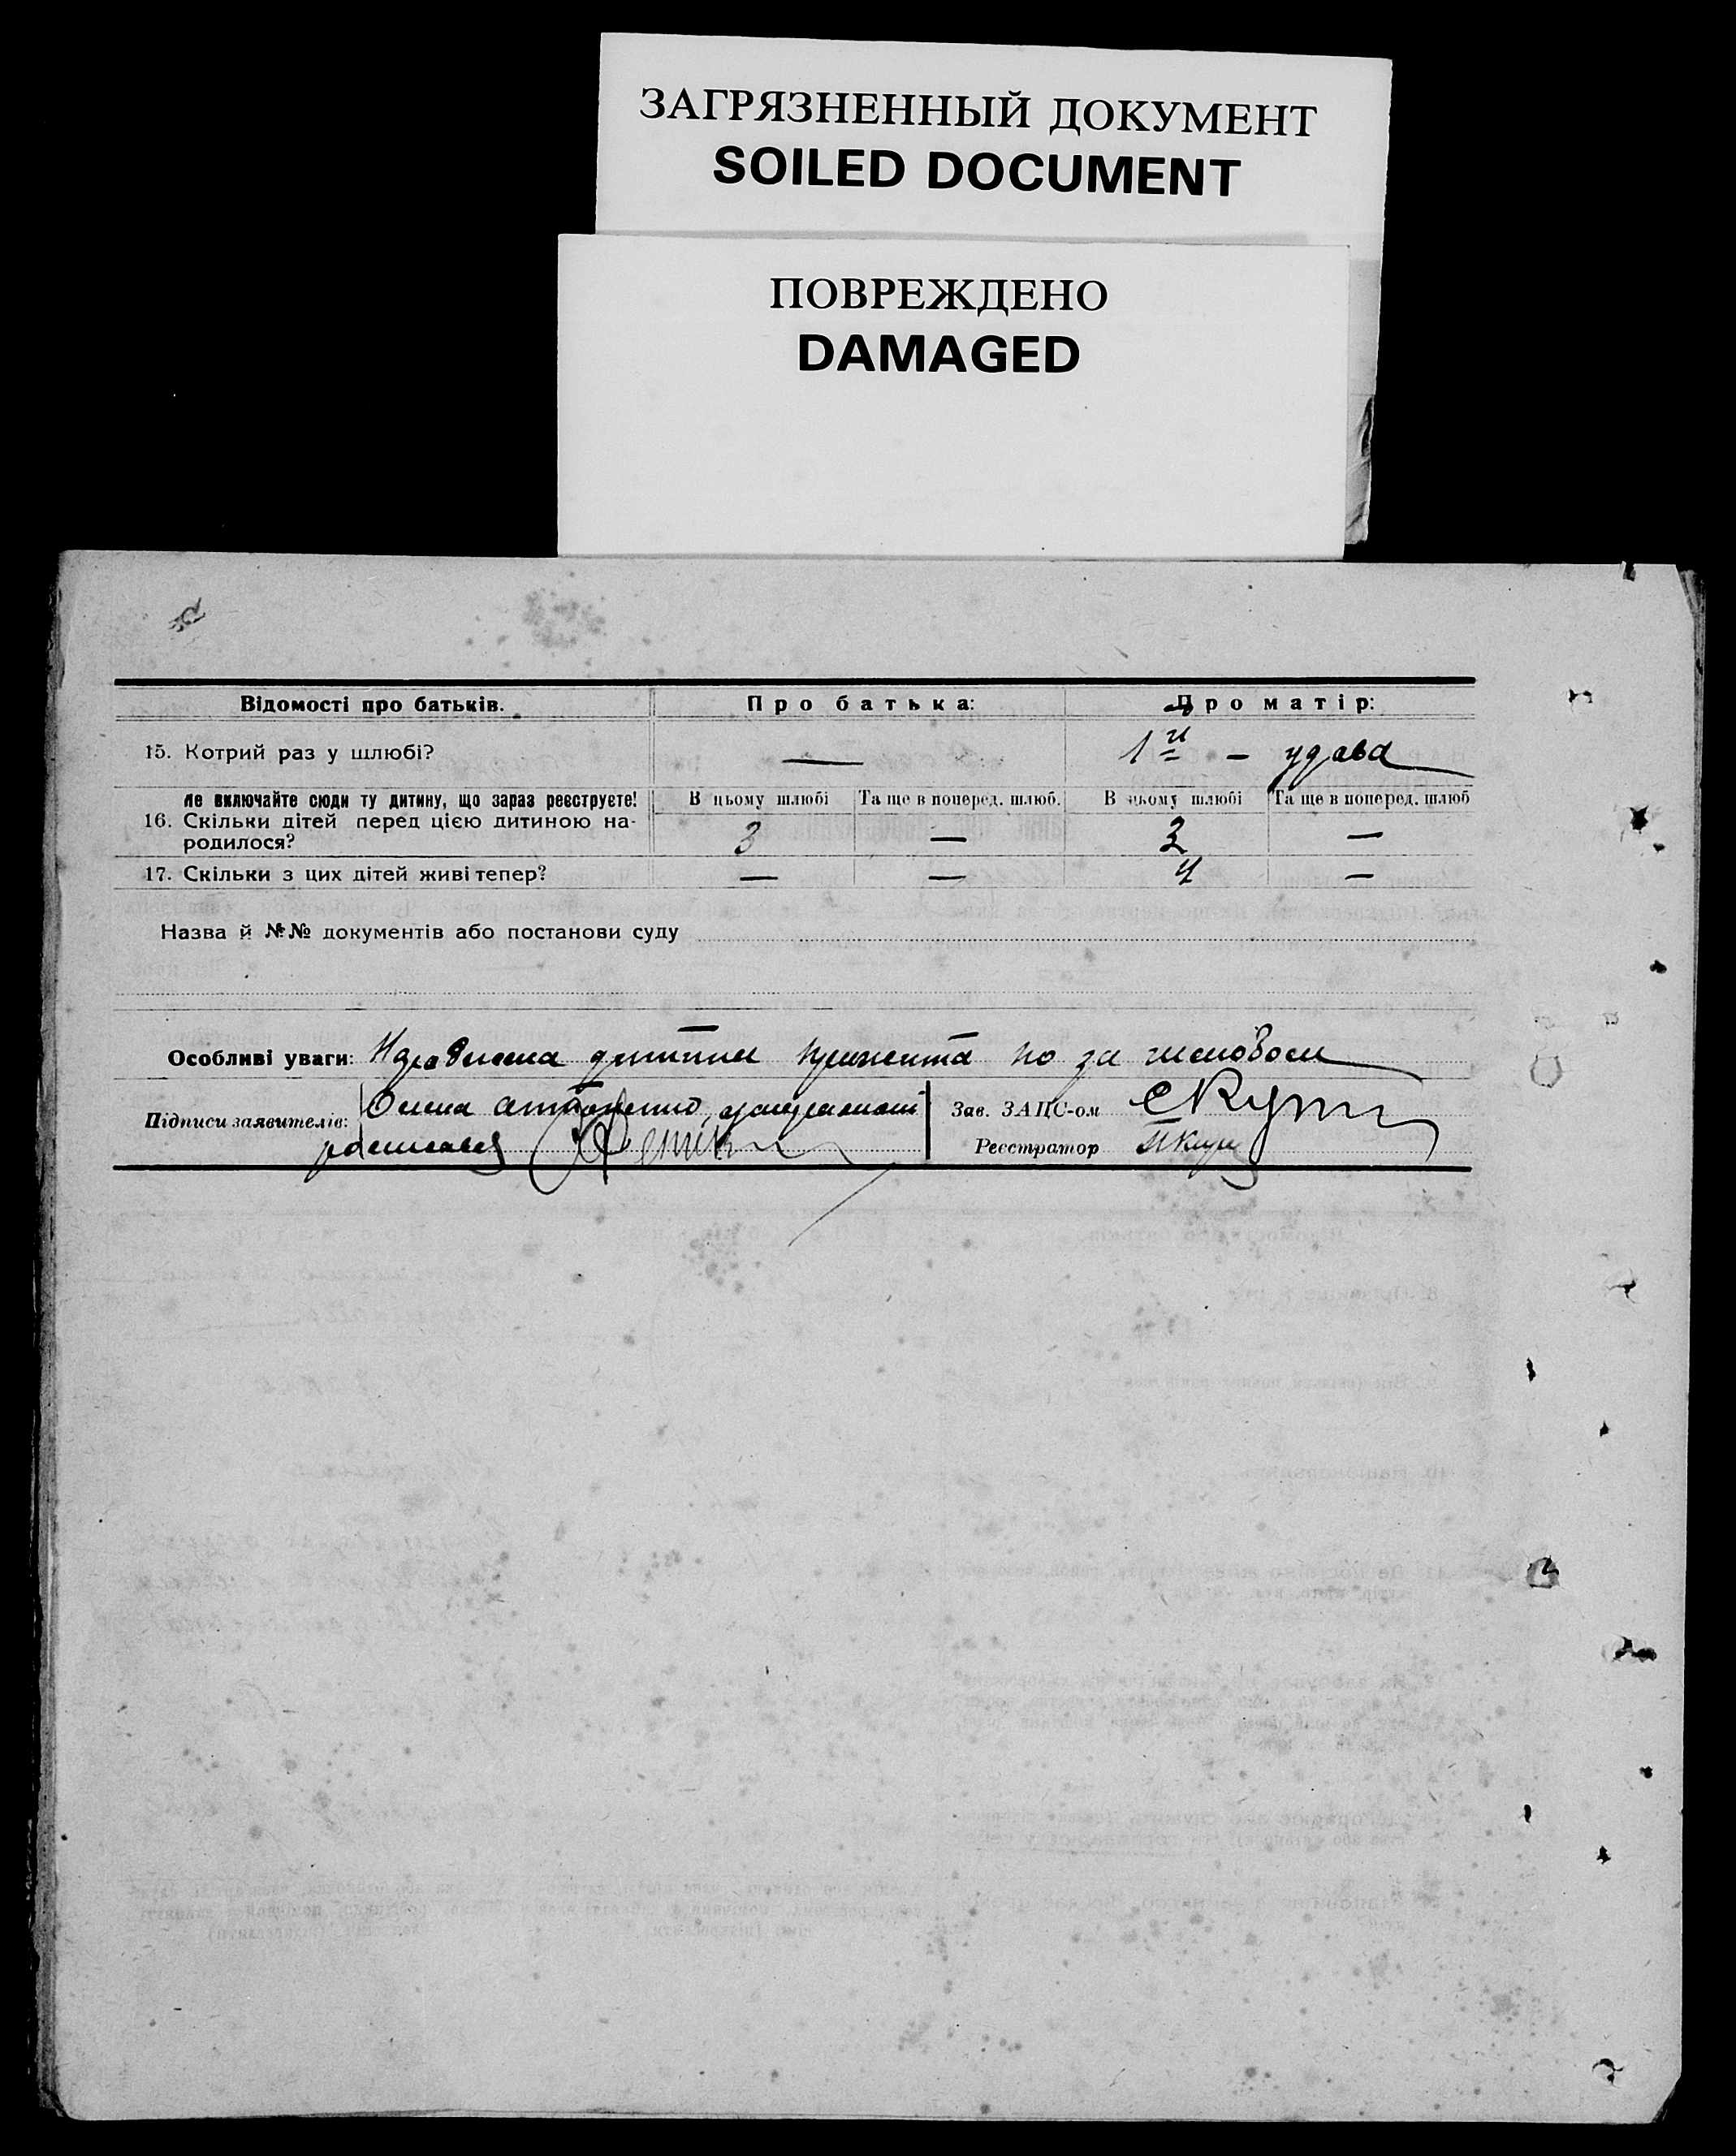 ЗАГРЯЗНЕННЫЙ ДОКУМЕНТ
SOILED DOCUMENT
ПОВРЕЖДЕНО
DAMAGED
Відомості про батьків. Про батька: Про матір:
15. Котрий раз у шлюбі? — 1й – удова
Не включайте сюди ту дитину, що зараз реєструєте! В цьому шлюбі Та ще в поперед. шлюб. В цьому шлюбі Та ще в поперед. шлюб
16. Скільки дітей перед цією дитиною на-
родилося? 3 — 3 —
17. Скільки з цих дітей живі тепер? — — —
Назва й №№ документів або постанови суду
Особливі уваги: дитина прижита по за
Підписи заявителів: Зав. ЗАЦС-ом
Реєстратор